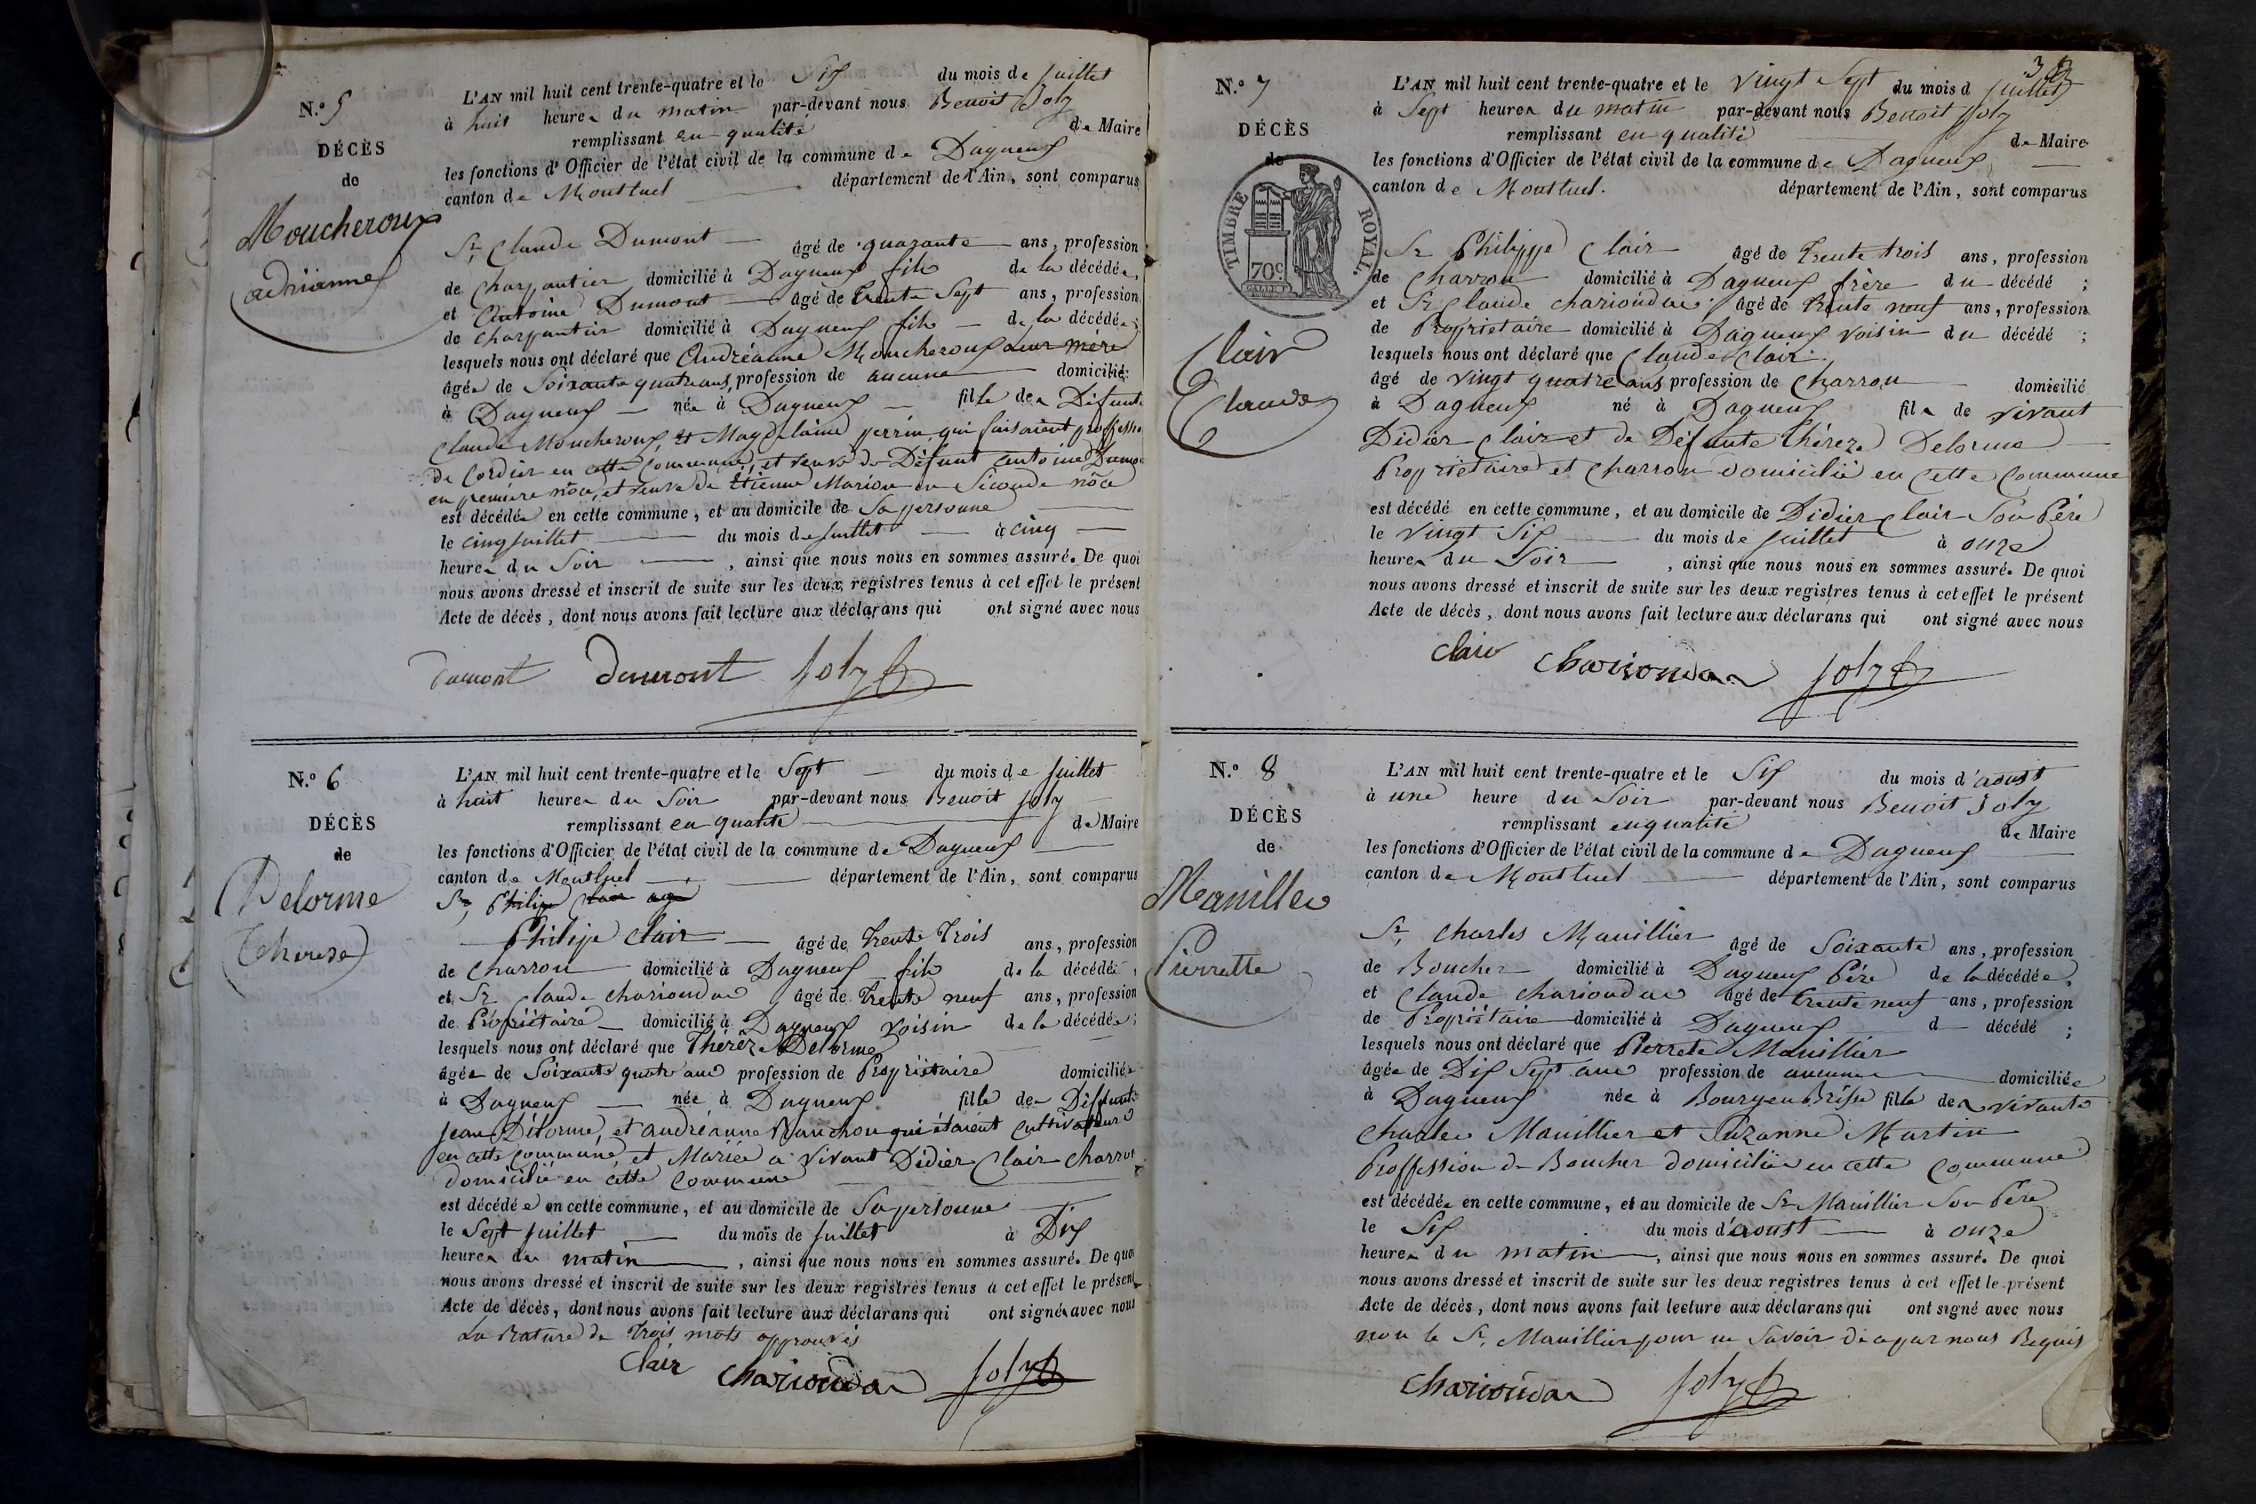 N.o 5
DÉCÈS
de
Moucheroux
adrianne
L'AN mil huit cent trente-quatre et le Six du mois de juillet
à huit heures du matin par-devant nous Benoit Joly
remplissant en qualité de Maire
les fonctions d'Officier de l'état civil de la commune de Dagneux
canton de Montluel département de l'Ain, sont comparus
Sr, Claude Dumont âgé de quarante ans, profession
de Charpantier domicilié à Dagneux fils de la décédée,
et Antoine Dumont âgé de trente Sept ans, profession
de charpantier domicilié à Dagneux fils de la décédée;
lesquels nous ont déclaré que Andréanne Moucheroux leur mère
âgée de Soixante quatre ans, profession de aucune domicilié
à Dagneux née à Dagneux fille des Défunts
Claude Moucheroux, et Magdelaine perrin, qui faisaient proffession
de Cordier en cette Commune, et veuve de Défunt antoine Dumont
en première nôce, et veuve de Etienne Marion en Séconde nôce
est décédée en cette commune, et au domicile de Sa personne
le cinq juillet du mois de juillet à cinq
heures du Soir, ainsi que nous nous en sommes assuré. De quoi
nous avons dressé et inscrit de suite sur les deux registres tenus à cet effet le présent
Acte de décès, dont nous avons fait lecture aux déclarans qui ont signé avec nous
Dumont Dumont Joly
N.o 6
DÉCÈS
de
Delorme
Therese
L'AN mil huit cent trente-quatre et le Sept du mois de juillet
à huit heures du Soir par-devant nous Benoit Joly
remplissant en qualité de Maire
les fonctions d'Officier de l'état civil de la commune de Dagneux
canton de Montluel département de l'Ain, sont comparus
Sr, Philipe Clair agé
Philipe Clair âgé de trente Trois ans, profession
de Charron domicilié à Dagneux fils de la décédée,
et Sr Claude charioudas âgé de trente neuf ans, profession
de Propriétaire domicilié à Dagneux voisin de la décédée;
lesquels nous ont déclaré que Thérèze Delorme
âgée de Soixante quatre ans profession de Propriétaire domiciliée
à Dagneux née à Dagneux fille des Défunts
Jean Délorme, et andréanne Planchon qui étaient Cultivateurs
en cette commune, et Mariée a vivant Didier Clair Charron
domicilié en cette Commune
est décédée en cette commune, et au domicile de Sa personne
le Sept juillet du mois de juillet à Dix
heures du matin, ainsi que nous nous en sommes assuré. De quoi
nous avons dressé et inscrit de suite sur les deux registres tenus à cet effet le présent
Acte de décès, dont nous avons fait lecture aux déclarans qui ont signés avec nous
La Rature de trois mots approuvés
Clair Charioudas Joly
N.o 7
DÉCÈS
de
TIMBRE ROYAL.
70c
Clair
Claude
L'AN mil huit cent trente-quatre et le vingt Sept du mois d juillet
à Sept heures du matin par-devant nous Benoit Joly
remplissant en qualité de Maire
les fonctions d'Officier de l'état civil de la commune de Dagneux
canton de Montluel. département de l'Ain, sont comparus
Sr Philippe Clair âgé de trente trois ans, profession
de Charron domicilié à Dagneux frère du décédé;
et Sr Claude charioudas âgé de trente neuf ans, profession
de Proprietaire domicilié à Dagneux voisin du décédé;
lesquels nous ont déclaré que Claude Clair
âgé de vingt quatre ans profession de Charron domicilié
à Dagneux né à Dagneux fils de vivant
Didier Clair et de Défunte thérèze Delorme
Proprietaire et Charron domicilié en Cette Commune
est décédé en cette commune, et au domicile de Didier Clair Son Père
le vingt Six du mois de juillet à onze
heures du Soir, ainsi que nous nous en sommes assuré. De quoi
nous avons dressé et inscrit de suite sur les deux registres tenus à cet effet le présent
Acte de décès, dont nous avons fait lecture aux déclarans qui ont signé avec nous
Clair Charioudas Joly
N.o 8
DÉCÈS
de
Manillier
Pierrette
L'AN mil huit cent trente-quatre et le Six du mois d'aoust
à une heure du Soir par-devant nous Benoit Joly
remplissant en qualité de Maire
les fonctions d'Officier de l'état civil de la commune de Dagneux
canton de Montluel département de l'Ain, sont comparus
Sr, Charles Manillier âgé de Soixante ans, profession
de Boucher domicilié à Dagneux Père de la décédée,
et Claude charioudas âgé de trente neuf ans, profession
de Propriétaire domicilié à Dagneux d décédé;
lesquels nous ont déclaré que Pierrete Manillier
âgée de Dix Sept ans profession de aucune domiciliée
à Dagneux née à Bourg en Brésse fille des vivants
Charles Manillier et Suzanne Martin
Proffession de Boucher domiciliés en cette Commune
est décédée en cette commune, et au domicile de Sr Manillier Son Père
le Six du mois d'aoust à onze
heures du matin, ainsi que nous nous en sommes assuré. De quoi
nous avons dressé et inscrit de suite sur les deux registres tenus à cet effet le présent
Acte de décès, dont nous avons fait lecture aux déclarans qui ont signé avec nous
non le Sr. Manillier pour ne Savoir de ce par nous Requis
Charioudas Joly